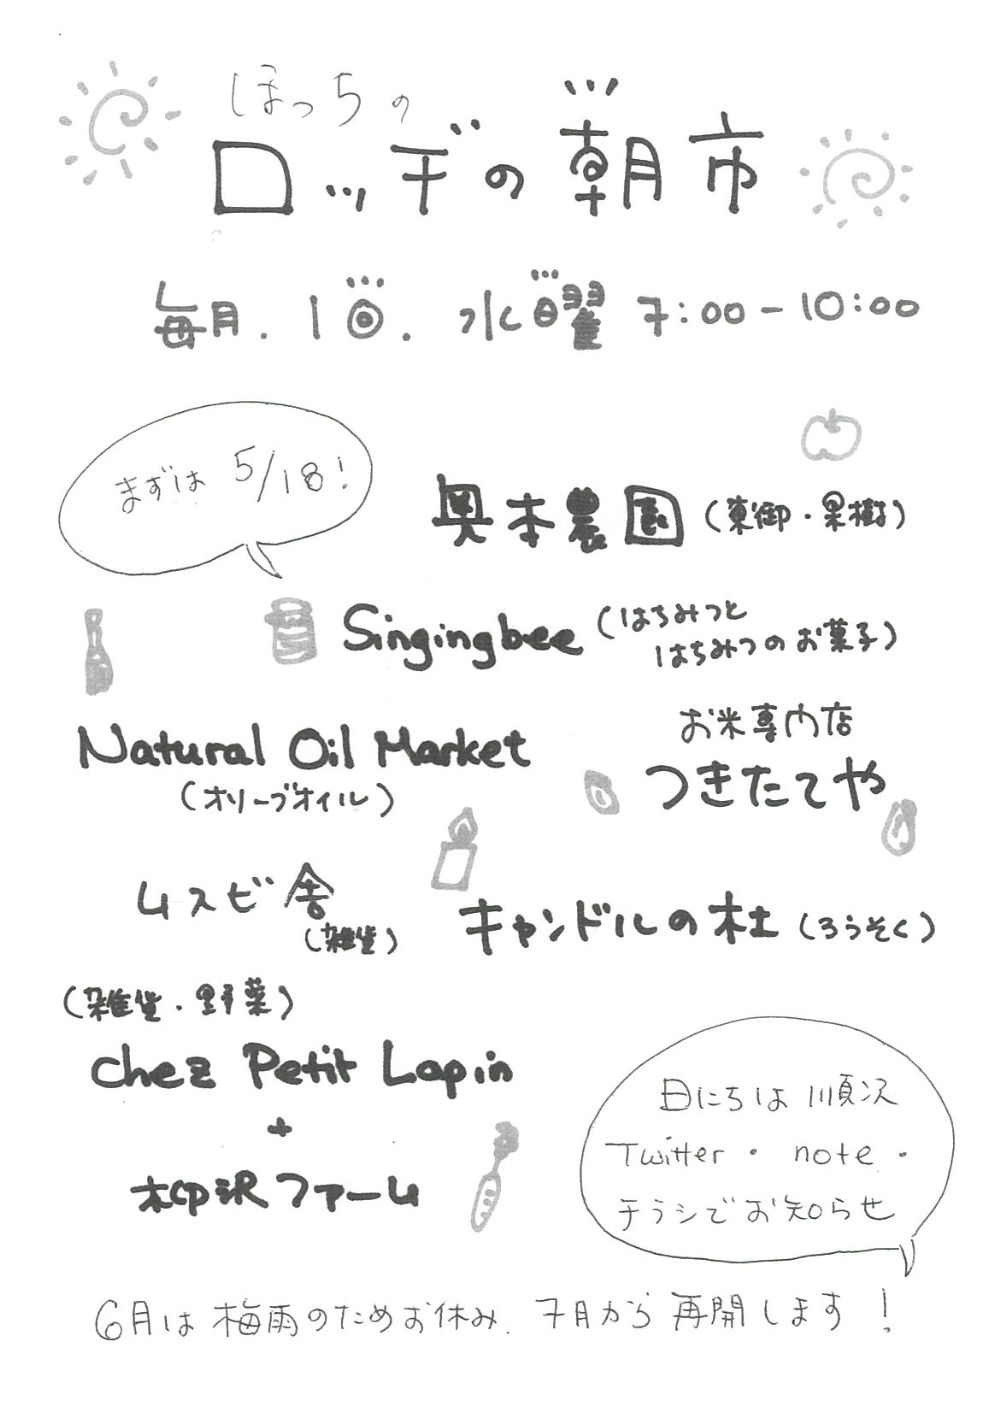 ほっちの
ロッヂの朝市
毎月.1回.水曜 7:00-10:00
まずは 5/18!
奥本農園(東御・果樹)
Singingbee(はちみつと
はちみつのお菓子)
Natural Oil Market
(オリーブオイル)
お米専門店
つきたてや
ムスビ舎
(雑貨)
キャンドルの杜(ろうそく)
(雑貨・野菜)
chez Petit Lapin
+
柳沢ファーム
日にちは順次
Twitter・note・
チラシでお知らせ
6月は梅雨のためお休み.7月から再開します!